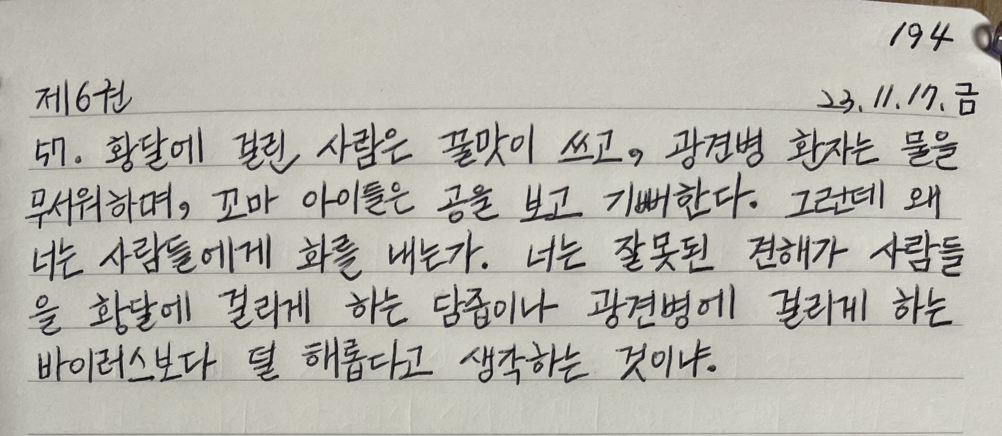 194
제6권
23.11.17.금
57. 황달에 걸린 사람은 꿀맛이 쓰고, 광견병 환자는 물을
무서워하며, 꼬마 아이들은 공을 보고 기뻐한다. 그런데 왜
너는 사람들에게 화를 내는가. 너는 잘못된 견해가 사람들
을 황달에 걸리게 하는 담즙이나 광견병에 걸리게 하는
바이러스보다 덜 해롭다고 생각하는 것이냐.